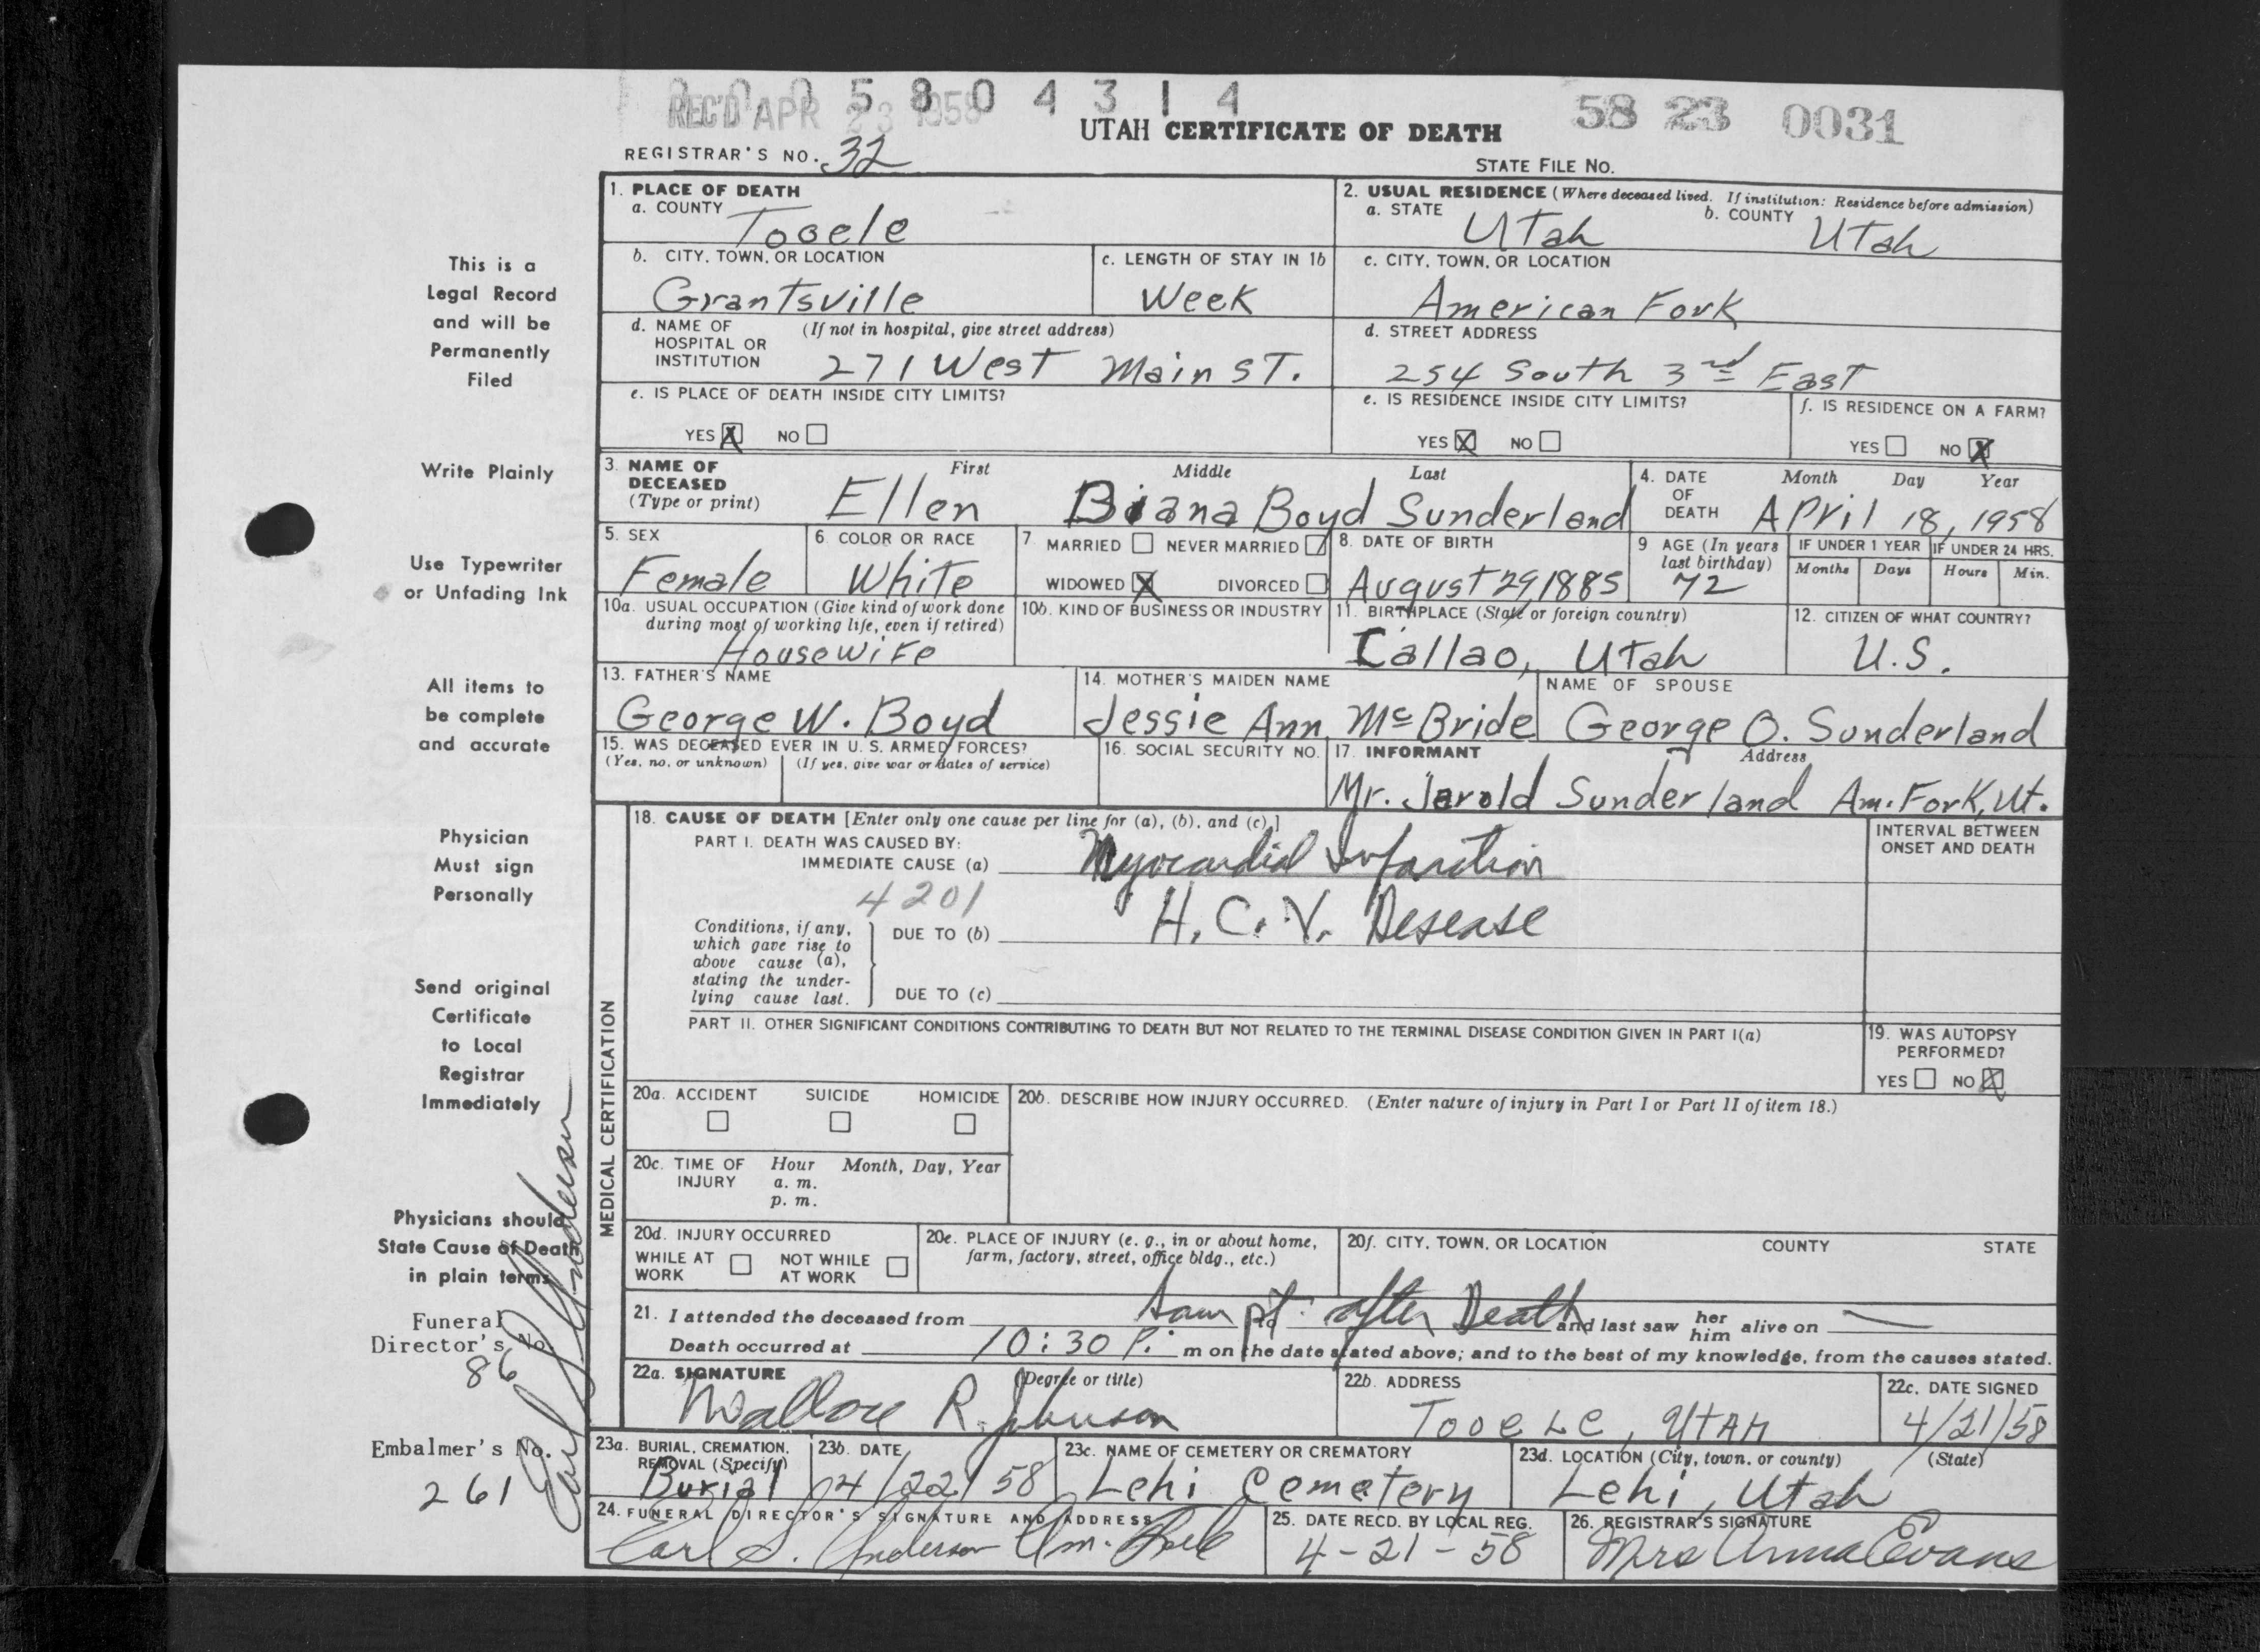 2 0 0 5 8 0 4 3 1 4
REC'D APR 23 1958
58 23 0031
UTAH CERTIFICATE OF DEATH
REGISTRAR'S NO. 32
STATE FILE NO.
1. PLACE OF DEATH
a. COUNTY
Tooele
2. USUAL RESIDENCE (Where deceased lived. If institution: Residence before admission)
a. STATE
Utah
b. COUNTY
Utah
b. CITY, TOWN, OR LOCATION
Grantsville
c. LENGTH OF STAY IN 1b
Week
c. CITY, TOWN, OR LOCATION
American Fork
d. NAME OF HOSPITAL OR INSTITUTION
(If not in hospital, give street address)
271 West Main ST.
d. STREET ADDRESS
254 South 3rd East
e. IS PLACE OF DEATH INSIDE CITY LIMITS?
YES X NO
e. IS RESIDENCE INSIDE CITY LIMITS?
YES X NO
f. IS RESIDENCE ON A FARM?
YES NO X
3. NAME OF DECEASED
(Type or print)
First Middle Last
Ellen Biana Boyd Sunderland
4. DATE OF DEATH
Month Day Year
April 18, 1958
5. SEX
Female
6. COLOR OR RACE
White
7. MARRIED NEVER MARRIED
WIDOWED X DIVORCED
8. DATE OF BIRTH
August 29, 1885
9 AGE (In years last birthday)
72
IF UNDER 1 YEAR
Months Days
IF UNDER 24 HRS.
Hours Min.
10a. USUAL OCCUPATION (Give kind of work done during most of working life, even if retired)
Housewife
10b. KIND OF BUSINESS OR INDUSTRY
11. BIRTHPLACE (State or foreign country)
Callao, Utah
12. CITIZEN OF WHAT COUNTRY?
U.S.
13. FATHER'S NAME
George W. Boyd
14. MOTHER'S MAIDEN NAME
Jessie Ann McBride
NAME OF SPOUSE
George O. Sunderland
15. WAS DECEASED EVER IN U. S. ARMED FORCES?
(Yes, no, or unknown) (If yes, give war or dates of service)
16. SOCIAL SECURITY NO.
17. INFORMANT
Address
Mr. Jerold Sunderland Am. Fork, Ut.
MEDICAL CERTIFICATION
18. CAUSE OF DEATH [Enter only one cause per line for (a), (b), and (c).]
PART I. DEATH WAS CAUSED BY:
IMMEDIATE CAUSE (a) Myocardial Infarction
4201
Conditions, if any, which gave rise to above cause (a), stating the underlying cause last.
DUE TO (b) H. C. V. Desease
DUE TO (c)
INTERVAL BETWEEN ONSET AND DEATH
PART II. OTHER SIGNIFICANT CONDITIONS CONTRIBUTING TO DEATH BUT NOT RELATED TO THE TERMINAL DISEASE CONDITION GIVEN IN PART I(a)
19. WAS AUTOPSY PERFORMED?
YES NO X
20a. ACCIDENT SUICIDE HOMICIDE
20b. DESCRIBE HOW INJURY OCCURRED. (Enter nature of injury in Part I or Part II of item 18.)
20c. TIME OF INJURY
Hour Month, Day, Year
a. m.
p. m.
20d. INJURY OCCURRED
WHILE AT WORK NOT WHILE AT WORK
20e. PLACE OF INJURY (e. g., in or about home, farm, factory, street, office bldg., etc.)
20f. CITY, TOWN, OR LOCATION COUNTY STATE
21. I attended the deceased from Saw pt. after Death and last saw her him alive on —
Death occurred at 10:30 P. m on the date stated above; and to the best of my knowledge, from the causes stated.
22a. SIGNATURE (Degree or title)
Wallace R. Johnson
22b. ADDRESS
Tooele, Utah
22c. DATE SIGNED
4/21/58
23a. BURIAL, CREMATION, REMOVAL (Specify)
Burial
23b. DATE
4/22/58
23c. NAME OF CEMETERY OR CREMATORY
Lehi Cemetery
23d. LOCATION (City, town, or county) (State)
Lehi, Utah
24. FUNERAL DIRECTOR'S SIGNATURE AND ADDRESS
Earl S. Anderson Am. Fork
25. DATE RECD. BY LOCAL REG.
4-21-58
26. REGISTRAR'S SIGNATURE
Mrs Anna Evans
This is a
Legal Record
and will be
Permanently
Filed
Write Plainly
Use Typewriter
or Unfading Ink
All items to
be complete
and accurate
Physician
Must sign
Personally
Send original
Certificate
to Local
Registrar
Immediately
Physicians should
State Cause of Death
in plain terms
Funeral
Director's No.
86
Embalmer's No.
261
Earl S Anderson